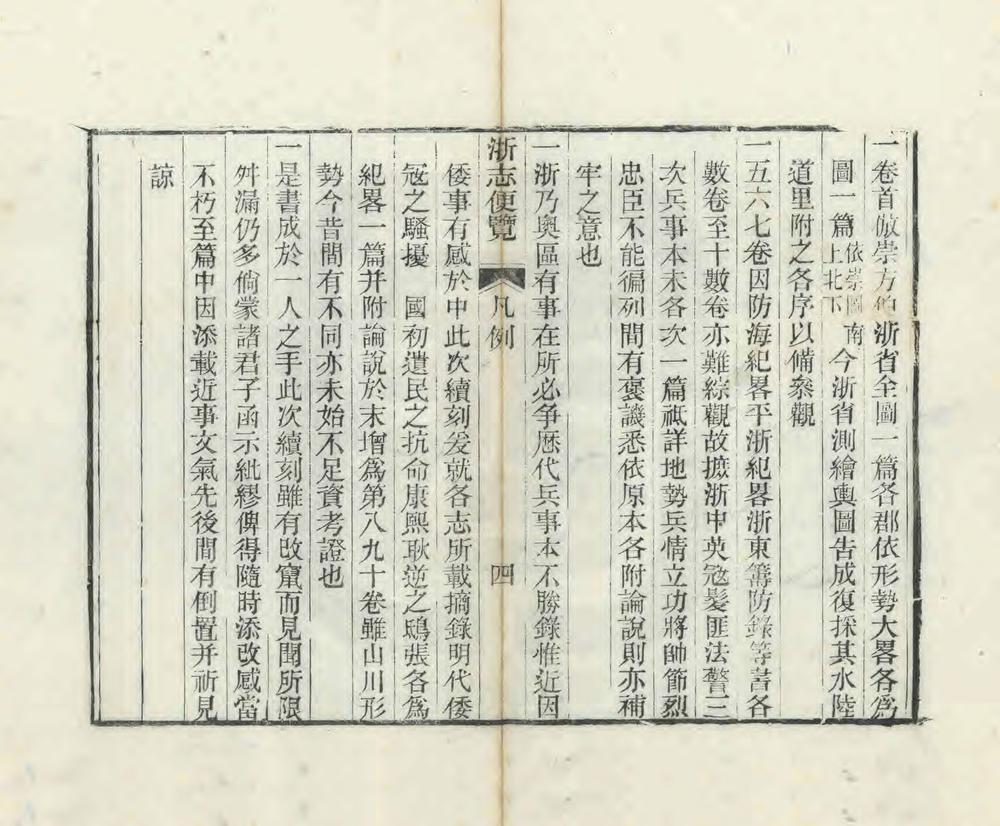 一卷首倣崇方伯浙省全圖一篇各郡依形勢大畧各爲
圖一篇依崇圖南上北下今浙省測繪輿圖告成復採其水陸
道里附之各序以備叅觀
一五六七卷因防海紀畧平浙紀畧浙東籌防錄等書各
數卷至十數卷亦難綜觀故摭浙中英冦髮匪法警三
次兵事本末各次一篇祗詳地勢兵情立功將帥節烈
忠臣不能徧列間有褒譏悉依原本各附論說則亦補
牢之意也
一浙乃奧區有事在所必争歴代兵事本不勝錄惟近因
浙志便覽 凡例 四
倭事有感於中此次續刻爰就各志所載摘錄明代倭
冦之騷擾 國初遺民之抗命康熙耿逆之鴟張各爲
紀畧一篇并附論說於末增爲第八九十卷雖山川形
勢今昔間有不同亦未始不足資考證也
一是書成於一人之手此次續刻雖有改竄而見聞所限
舛漏仍多倘蒙諸君子函示紕繆俾得隨時添改感當
不朽至篇中因添載近事文氣先後間有倒置并祈見
諒